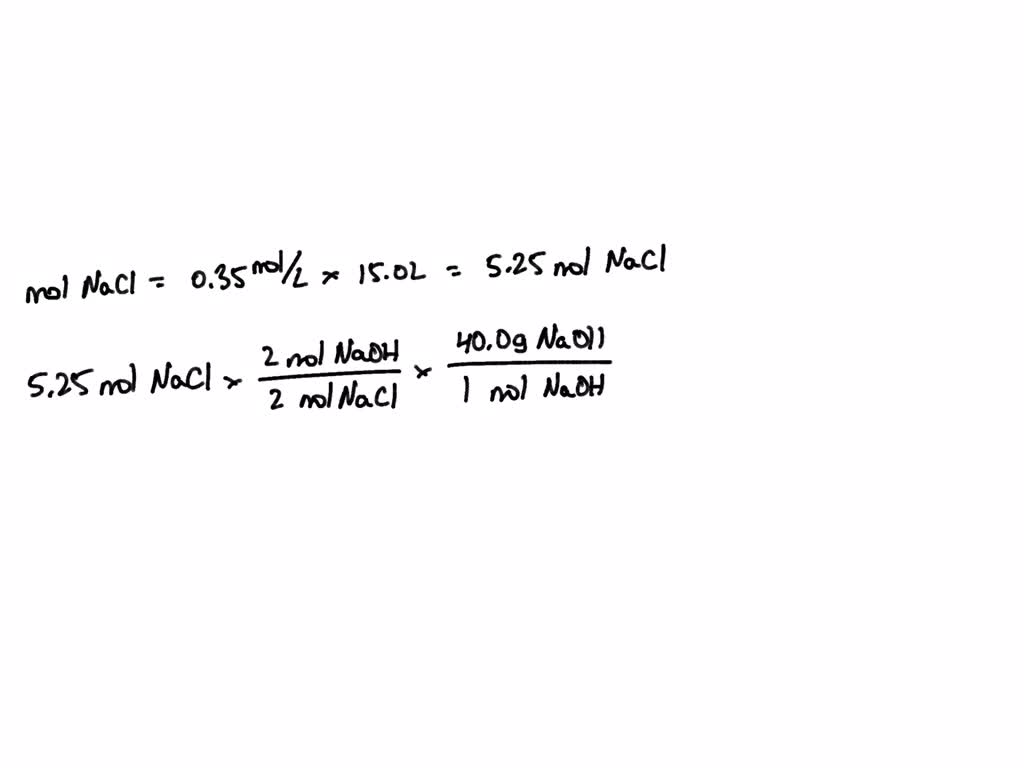 mol NaCl = 0.35 mol/L × 15.0L = 5.25 mol NaCl
5.25 mol NaCl × 2 mol NaOH / 2 mol NaCl × 40.0g NaOH / 1 mol NaOH